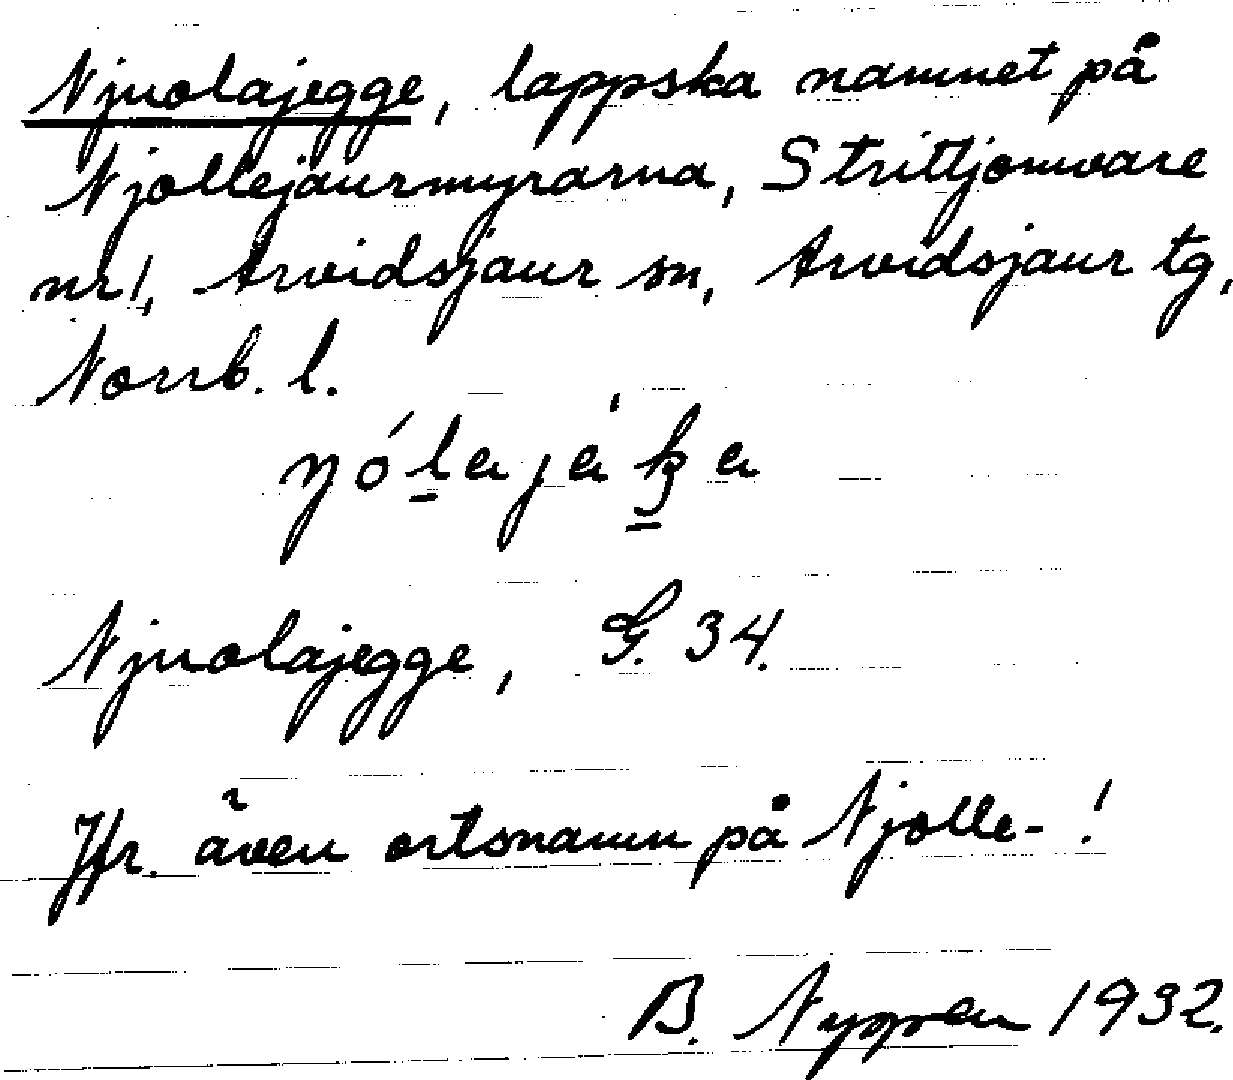 Njuolajegge, lappska namnet på
Njollejaurmyrarna, Strittjomvare
nr 1, Arvidsjaur sn, Arvidsjaur tg,
Norrb. l.
Njuolajegge, G. 34.
Jfr. även ortsnamn på Njolle- !
B. Nygren 1932.